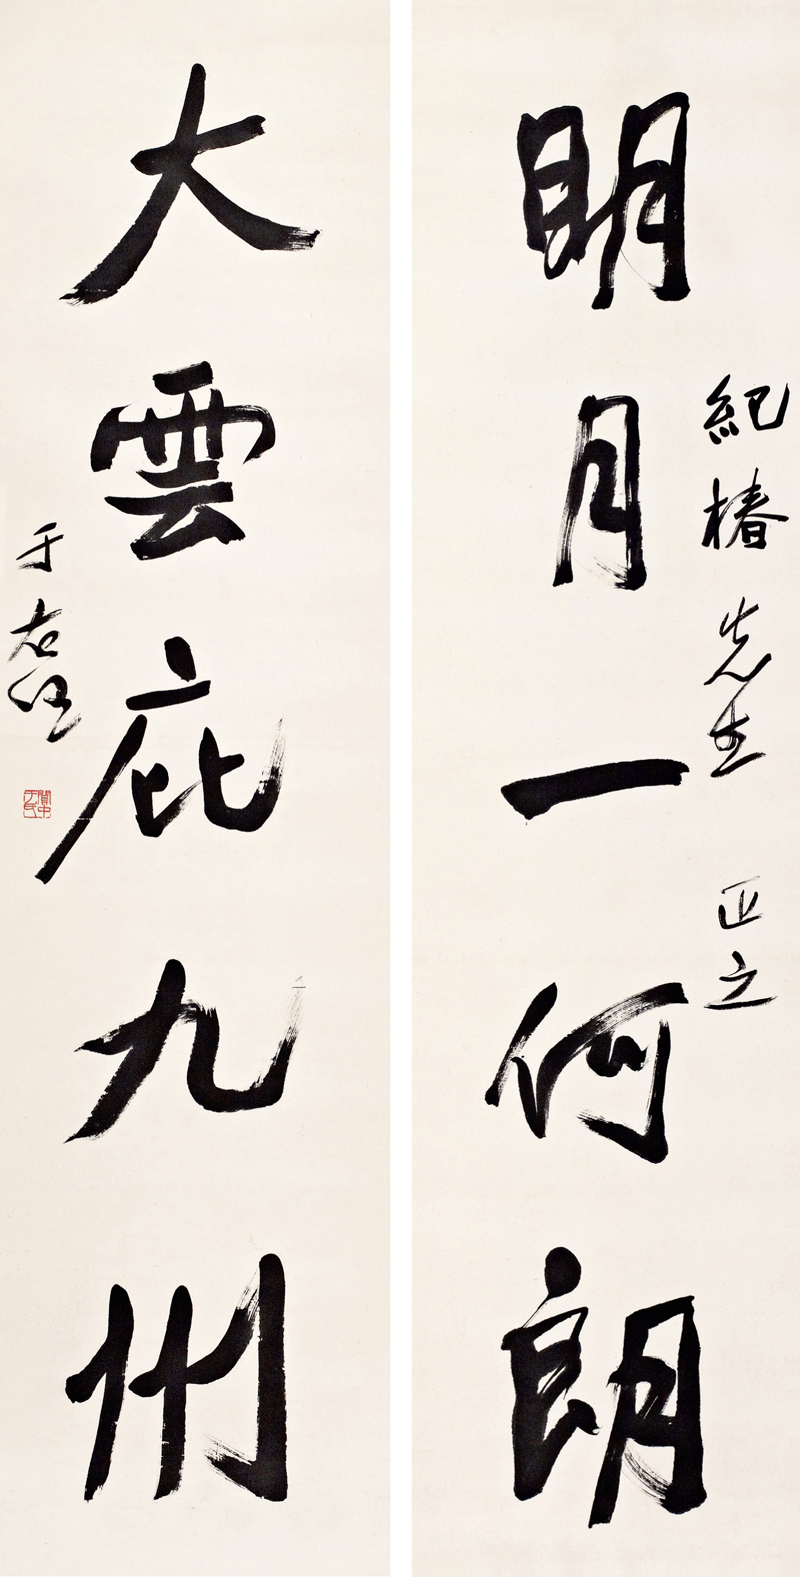 明月一何朗
紀椿先生 正之
大雲庇九州
于右任
關中于氏